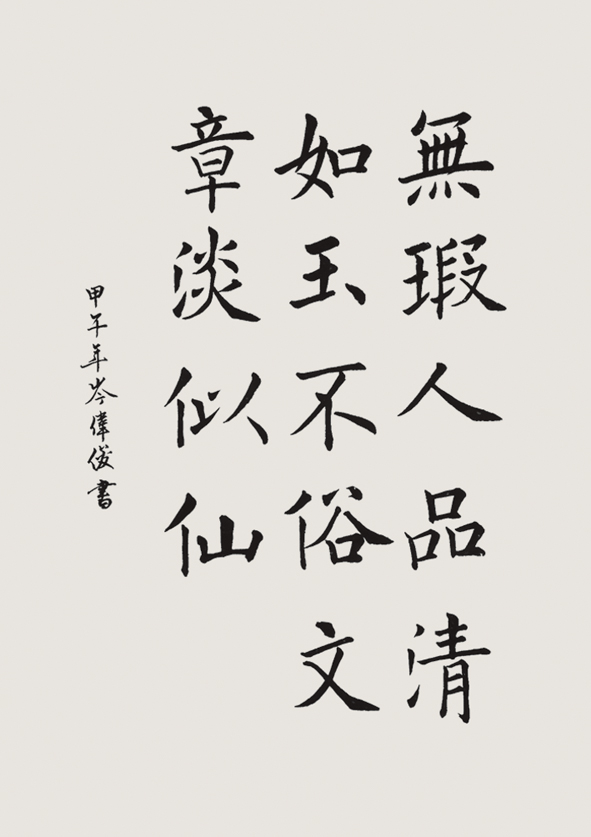 無瑕人品清
如玉不俗文
章淡似仙
甲午年岑偉俊書